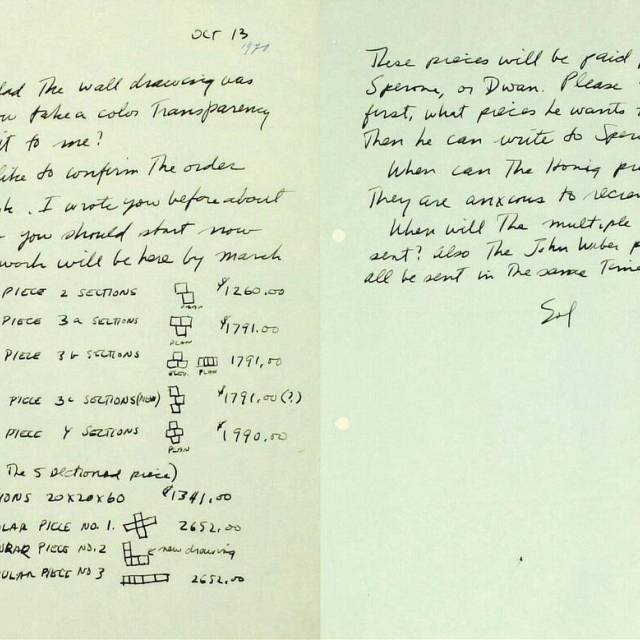 OCT 13
1971
The wall drawing was
take a color Transparency
it to me?
like to confirm The order
. I wrote you before about
you should start now
work will be here by march
PIECE 2 SECTIONS $1260.00
PIECE 3a SECTIONS PLAN $1791.00
PIECE 3b SECTIONS ELEV. PLAN 1791.00
PIECE 3c SECTIONS (PLAN) $1791.00 (?)
PIECE 4 SECTIONS PLAN $1990.00
The 5 sectioned piece)
IONS 20x20x60 $1341.00
LAR PIECE NO. 1. 2652.00
PIECE NO. 2 new drawing
ULAR PIECE NO 3 2652.00
These pieces will be paid
Sperone, or Dwan. Please
first, what pieces he wants
Then he can write to Sper
When can The Honig
They are anxious to
When will The multiple
sent? Also The John Weber
all be sent in The same Time
Sol